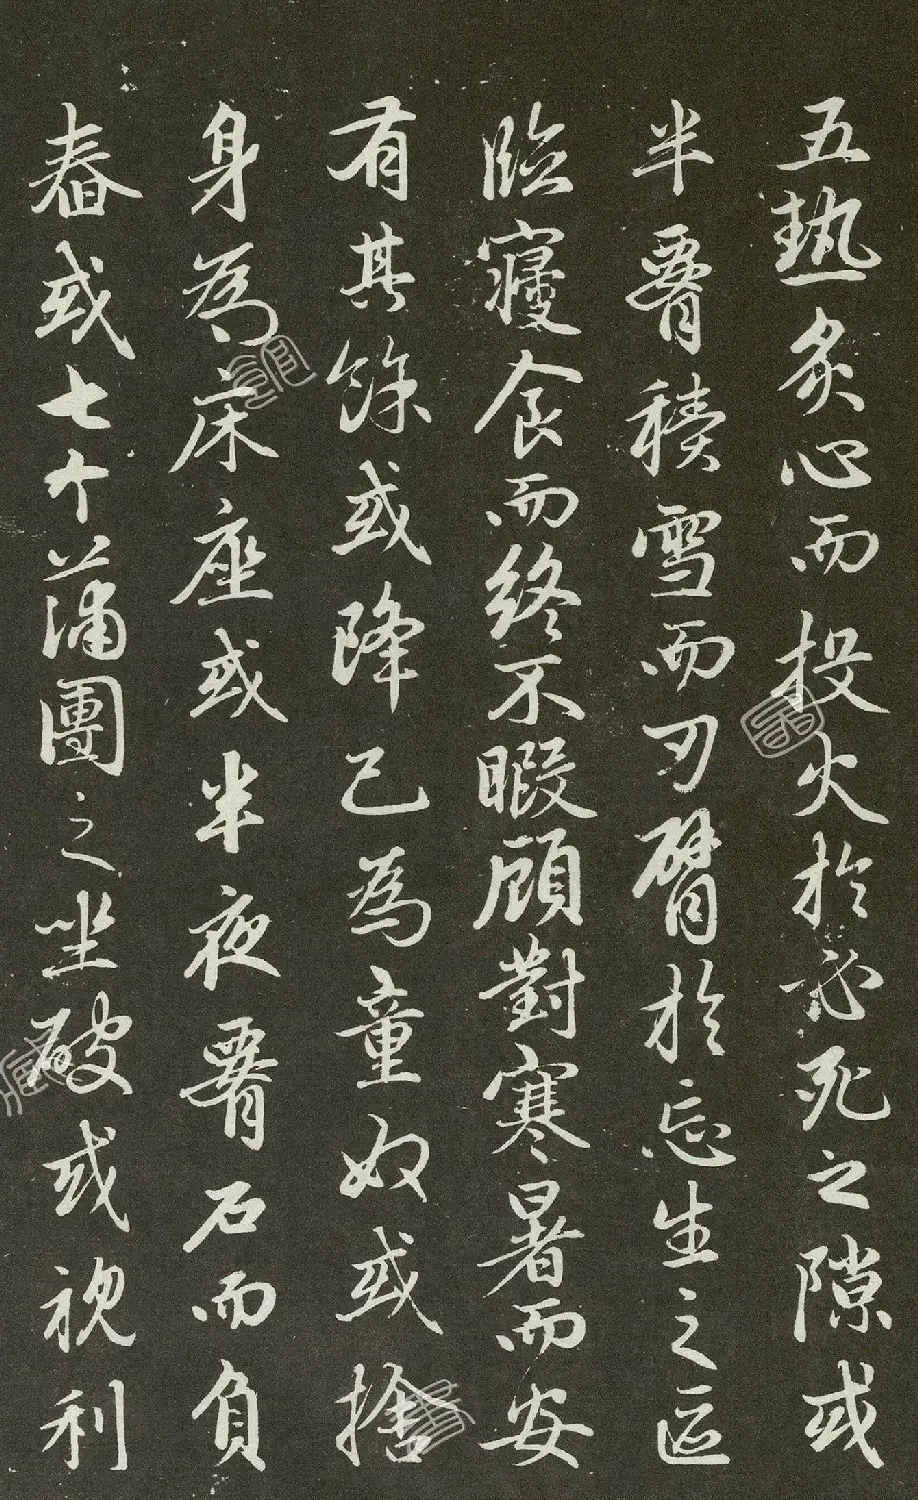 五熱炙心而投火於必死之隙或
半腰積雪而刃臂於忘生之區
臨寢食而終不暇顧對寒暑而安
有其餘或降己為童奴或捨
身為床座或半夜腰石而負
舂或七个蒲團之坐破或視利